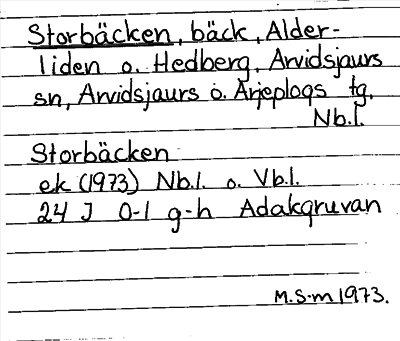 Storbäcken, bäck, Alder-
liden o. Hedberg, Arvidsjaurs
sn, Arvidsjaurs o. Arjeplogs tg,
Nb.l.
Storbäcken
ek (1973) Nb.l. o. Vb.l.
24 J 0-1 g-h Adakgruvan
M.S-m 1973.